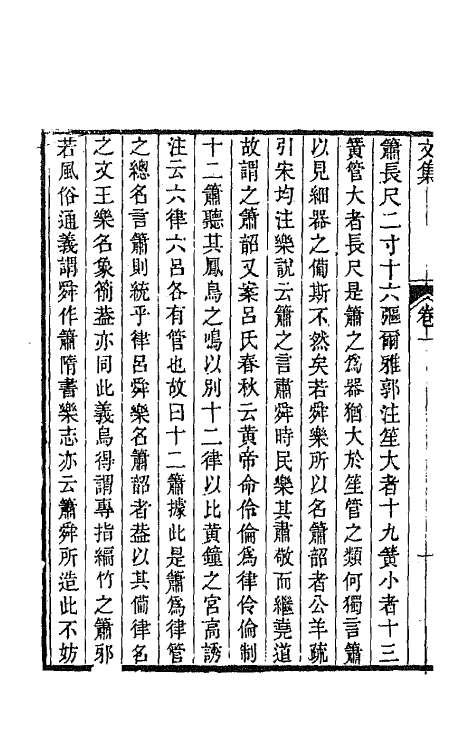 文集
卷一
簫長尺二寸十六彄爾雅郭注笙大者十九簧小者十三
簧管大者長尺是簫之爲器猶大於笙管之類何獨言簫
以見細器之備斯不然矣若舜樂所以名簫韶者公羊疏
引宋均注樂說云簫之言肅舜時民樂其肅敬而繼堯道
故謂之簫韶又案呂氏春秋云黃帝命伶倫爲律伶倫制
十二簫聽其鳳鳥之鳴以別十二律以比黃鐘之宮高誘
注云六律六呂各有管也故曰十二簫據此是簫爲律管
之總名言簫則統乎律呂舜樂名簫韶者葢以其備律名
之文王樂名象箾葢亦同此義烏得謂專指編竹之簫邪
若風俗通義謂舜作簫隋書樂志亦云簫舜所造此不妨